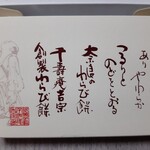 あゝやわらか
つるりと
のどをとおる
奈良の
わらび餅
千壽庵吉宗
創製わらび餅